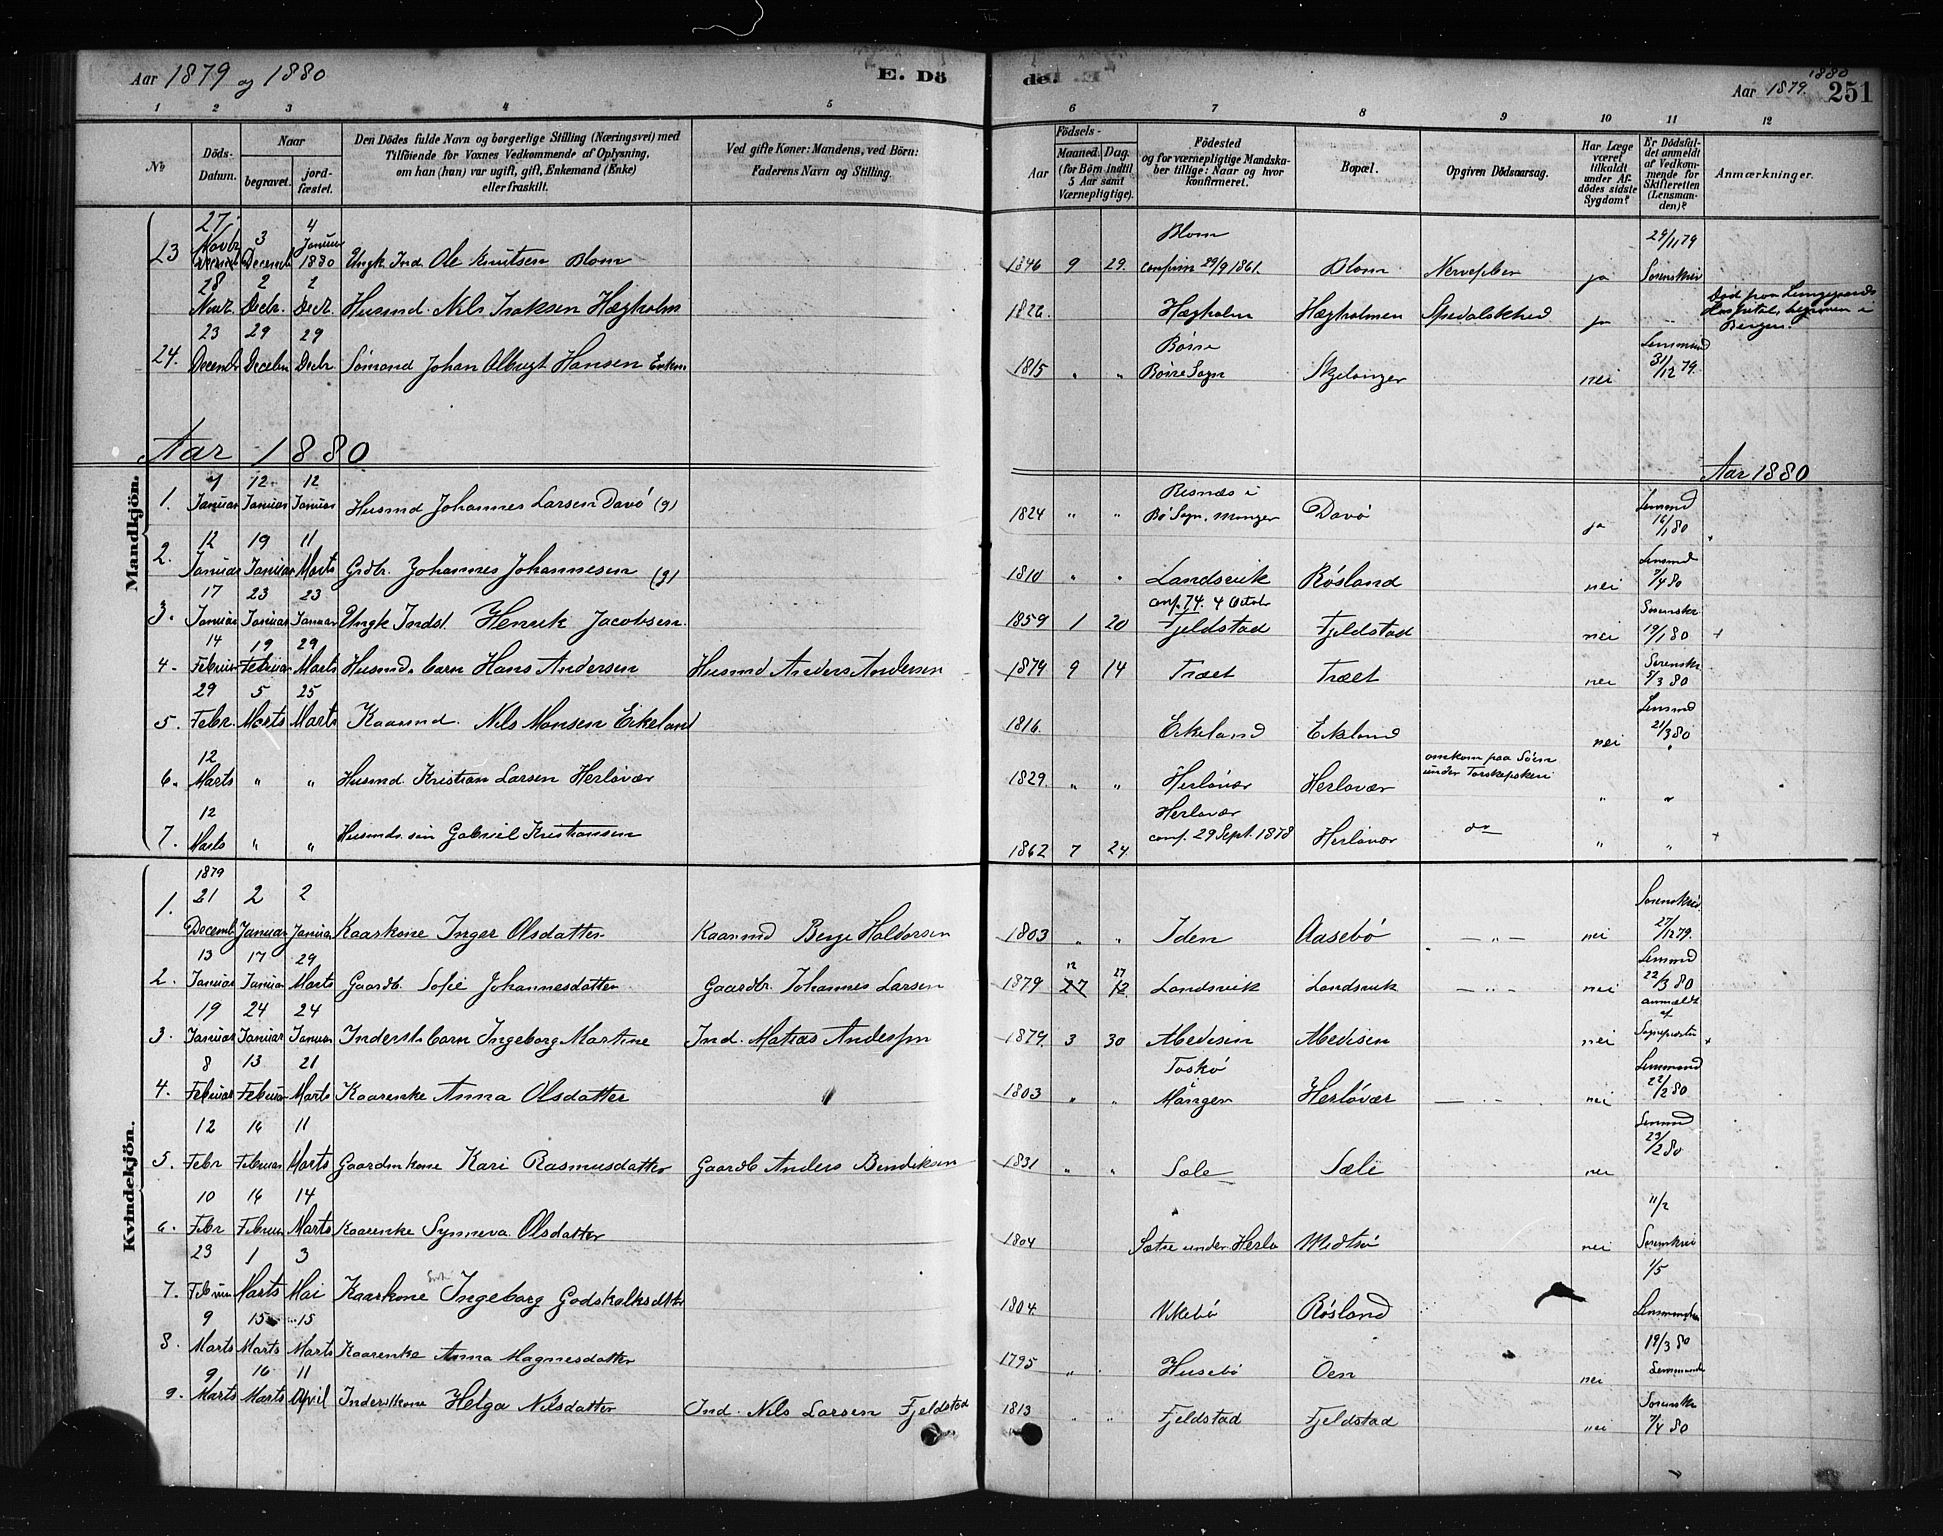 Aar 1879 og 1880
E. Dö
de.
1880
Aar 1879. 251
1 2 3 4 5 6 7 8 9 10 11 12
No
Döds-Datum.
Naar
begravet.
jord-fæstet.
Den Dödes fulde Navn og borgerlige Stilling (Næringsvei) med
Tilföiende for Voxnes Vedkommende af Oplysning,
om han (hun) var ugift, gift, Enkemand (Enke)
eller fraskilt.
Ved gifte Koner: Mandens, ved Börn:
Faderens Navn og Stilling.
Födsels-
Aar
Maaned. Dag.
(for Börn indtil
5 Aar samt
Værnepligtige).
Födested
og for værnepligtige Mandska-
ber tillige: Naar og hvor
konfirmeret.
Bopæl.
Opgiven Dödsaarsag.
Har Læge
været
tilkaldt
under Af-
dödes sidste
Sygdom?
Er Dödsfal-
det anmeldt
af Vedkom-
mende for
Skifteretten
(Lensman-
den)?
Anmærkninger.
23 27 Novbr 3 Decemb 4 Januar 1880 Ungk. Ind. Ole Knutsen Blom 1846 9 29. Blom confirm 29/9 1861. Blom ja 29/11 79 Sorenskriv
28 Novr. 2 Decbr. 2 Decr. Husmd. Nils Isaksen Hægholm 1826. Hægholm Hægholmen Spedalskhed ja Død paa Lungegaards Hospital, begraven i Bergen.
24. 23 Decembr 29 Decebr 29 Decbr. Sømand Johan Albrigt Hansen Enkem 1815 " " Sogn Skjelanger nei Lensmand 31/12 79.
Aar 1880
Aar 1880
Mandkjön.
1. 7 Januar 12 Januar 12 Januar Husmd Johannes Larsen Davö (g) 1824 " " Risnæs i Bö Sogn, Manger Davö ja Lensmd 16/1 80
2. 12 Januar 19 Januar 11 Marts Grdbr. Johannes Johannesen (g) 1810 " " Landsvik Røsland nei Lensmd 7/4 80
3. 17 Januar 23 Januar 23 Januar Ungk Indst. Henrik Jacobsen. 1859 1 20 conf. 74. 4 Octobr Fjeldstad Fjeldstad nei Sorenskr 19/1 80
4. 14 Februar 19 Februar 29 Marts Husmds barn Hans Andersen Husmd Anders Andersen 1879 9 14 Træet Træet nei Sorenskr 5/3 80
5. 29 Febr. 5 Marts 25 Marts Kaarmd. Nils Monsen Eikeland 1816. Eikeland Eikland nei Lensmd 21/3 80
6. 12 Marts " " Husmd. Kristian Larsen Herløvær 1829. " " Herløvær Herløvær omkom paa Søen under Torskefiskeri " "
7. 12 Marts " " Husmds søn Gabriel Kristiansen 1862 7 24. Herløvær conf. 29 Sept. 1878 Herløvær do " "
Kvindekjön.
1. 1879 21 Decemb 2 Januar 2 Januar Kaarkone Inger Olsdatter Kaarmd Berge Haldorsen 1803 " " Iden Aasebö — " — nei Sorenskriv. 27/12 79.
2. 13 Januar 17 Januar 29 Marts Gaardb. Sofie Johannesdatter Gaardbr. Johannes Larsen 1879 12 27 Landsvik Landsvik — " — nei Lensmd 22/3 80
3. 19 Januar 24 Januar 24 Januar Inderst. barn Ingeborg Martine Ind. Matias Anderssen 1879. 3 30 Medisin Medisin nei anmeldt af
4. 8 Februar 13 Februar 21 Marts Kaarenke Anna Olsdatter " 1803 " " Toskö Manger Herløvær nei Lensmand 22/2 80
5. 12 Febr 16 Februar 11 Marts Gaardm kone Kari Rasmusdatter Gaardb Anders Bendiksen 1831 " " Sæle Sæle nei Lensmd 23/2 80
6. 10 Febr 16 Februar 14 Marts Kaarenke Synneva Olsdatter 1804 Sætre under Herlø Midtsö nei 11/2 Sorenskri
7. 23 Februar 1 Marts 3 Mai Kaarkone Ingeborg Godskalksdtter 1804. Vikebö Røsland 1/5 Lensmanden
8. 9 Marts 15 Marts 15 Marts Kaarenke Anna Magnesdatter 1795 " Husebö Oen nei 19/3 80 Lensmand
9. 9 Marts 16 Marts 11 April Inderstkone Helga Nilsdatter Ind. Nils Larsen Fjeldstad 1813 " " Fjeldstad Fjeldstad nei Sorenskr 7/4 80